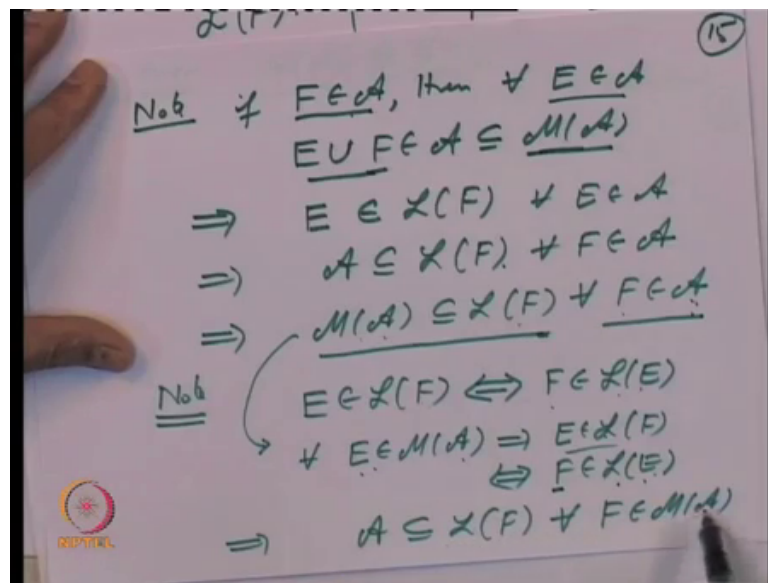 15
Note if F ∈ 𝒜, then ∀ E ∈ 𝒜
E ∪ F ∈ 𝒜 ⊆ ℳ(𝒜)
⇒ E ∈ ℒ(F) ∀ E ∈ 𝒜
⇒ 𝒜 ⊆ ℒ(F). ∀ F ∈ 𝒜
⇒ ℳ(𝒜) ⊆ ℒ(F) ∀ F ∈ 𝒜
Note E ∈ ℒ(F) ⇔ F ∈ ℒ(E)
∀ E ∈ ℳ(𝒜) ⇒ E ∈ ℒ(F)
⇔ F ∈ ℒ(E)
⇒ 𝒜 ⊆ ℒ(F) ∀ F ∈ ℳ(𝒜)
NPTEL